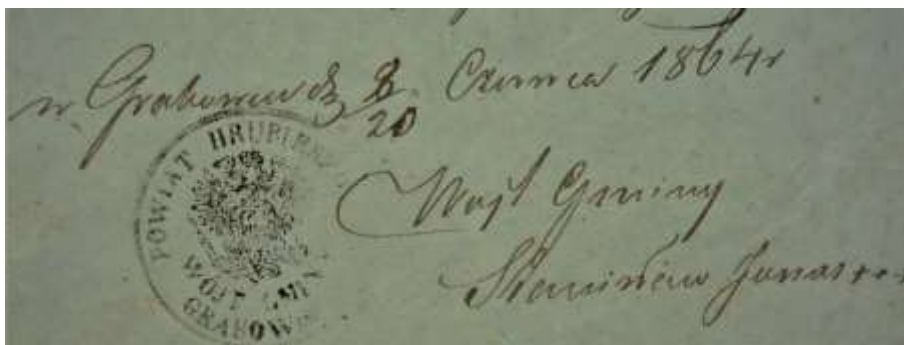 w Grabowcu d. 8/20 Czerwca 1864 r
POWIAT HRUBIESZ
WÓJT GMINY
GRABOW
Wójt Gminy
Stanisław